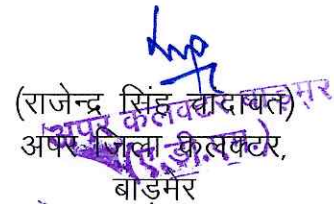 (राजेन्द्र सिंह चांदावत)
अपर कलक्टर बाड़मेर
अपर जिला कलक्टर,
बाड़मेर